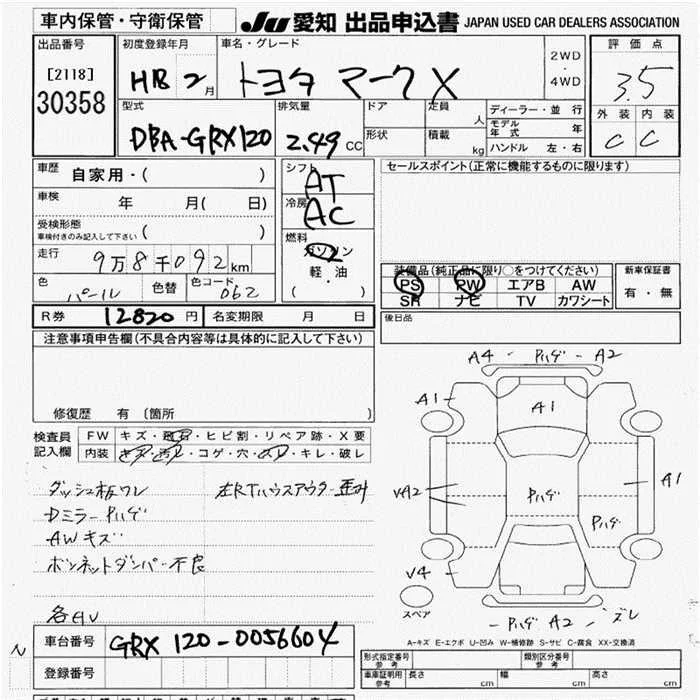 車内保管・守衛保管
JU 愛知 出品申込書 JAPAN USED CAR DEALERS ASSOCIATION
出品番号
[2118]
30358
初度登録年月
H18 2月
車名・グレード
トヨタ マークX
2WD
・
4WD
評価点
3.5
外装 内装
C C
型式
DBA-GRX120
排気量
2.49 CC
ドア
形状
定員 人
積載 kg
ディーラー・並行
モデル年式 年
ハンドル 左・右
車歴 自家用・( )
車検 年 月( 日)
受検形態
車検付きのみ記入して下さい ( )
走行 9万8千092km
色 パール
色替
色コード 062
シフト AT
冷房 AC
燃料
ガソリン
軽・油
( )
セールスポイント(正常に機能するものに限ります)
装備品(純正品に限り○をつけてください)
PS PW エアB AW
SR ナビ TV カワシート
新車保証書
有・無
後日品
R券 12820円
名変期限 月 日
注意事項申告欄(不具合内容等は具体的に記入して下さい)
修復歴 有〔箇所 〕
検査員記入欄
FW キズ・飛石・ヒビ割・リペア跡・X要
内装 キズ・汚れ・コゲ・穴・スレ・キレ・破レ
ダッシュ板ワレ
DミラーPハゲ
AWキズ
ボンネットダンパー不良
各AU
A4 - Pハゲ - A2
A1
A1
VA2
Pハゲ
A1
Pハゲ
V4
スペア
- Pハゲ A2 - ズレ
A-キズ E-エクボ U-凹み W-補修跡 S-サビ C-腐食 XX-交換済
N
車台番号 GRX120-0056604
登録番号
形式指定番号
参考
類別区分番号
参考
車庫証明用
参考
長さ cm
幅 cm
高さ cm